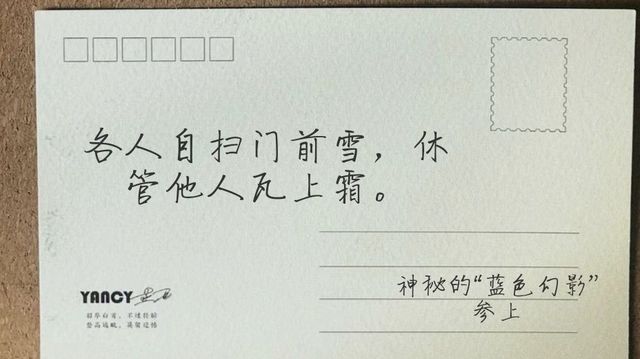 各人自扫门前雪，休
管他人瓦上霜。
神秘的“蓝色幻影”
参上
YANCY